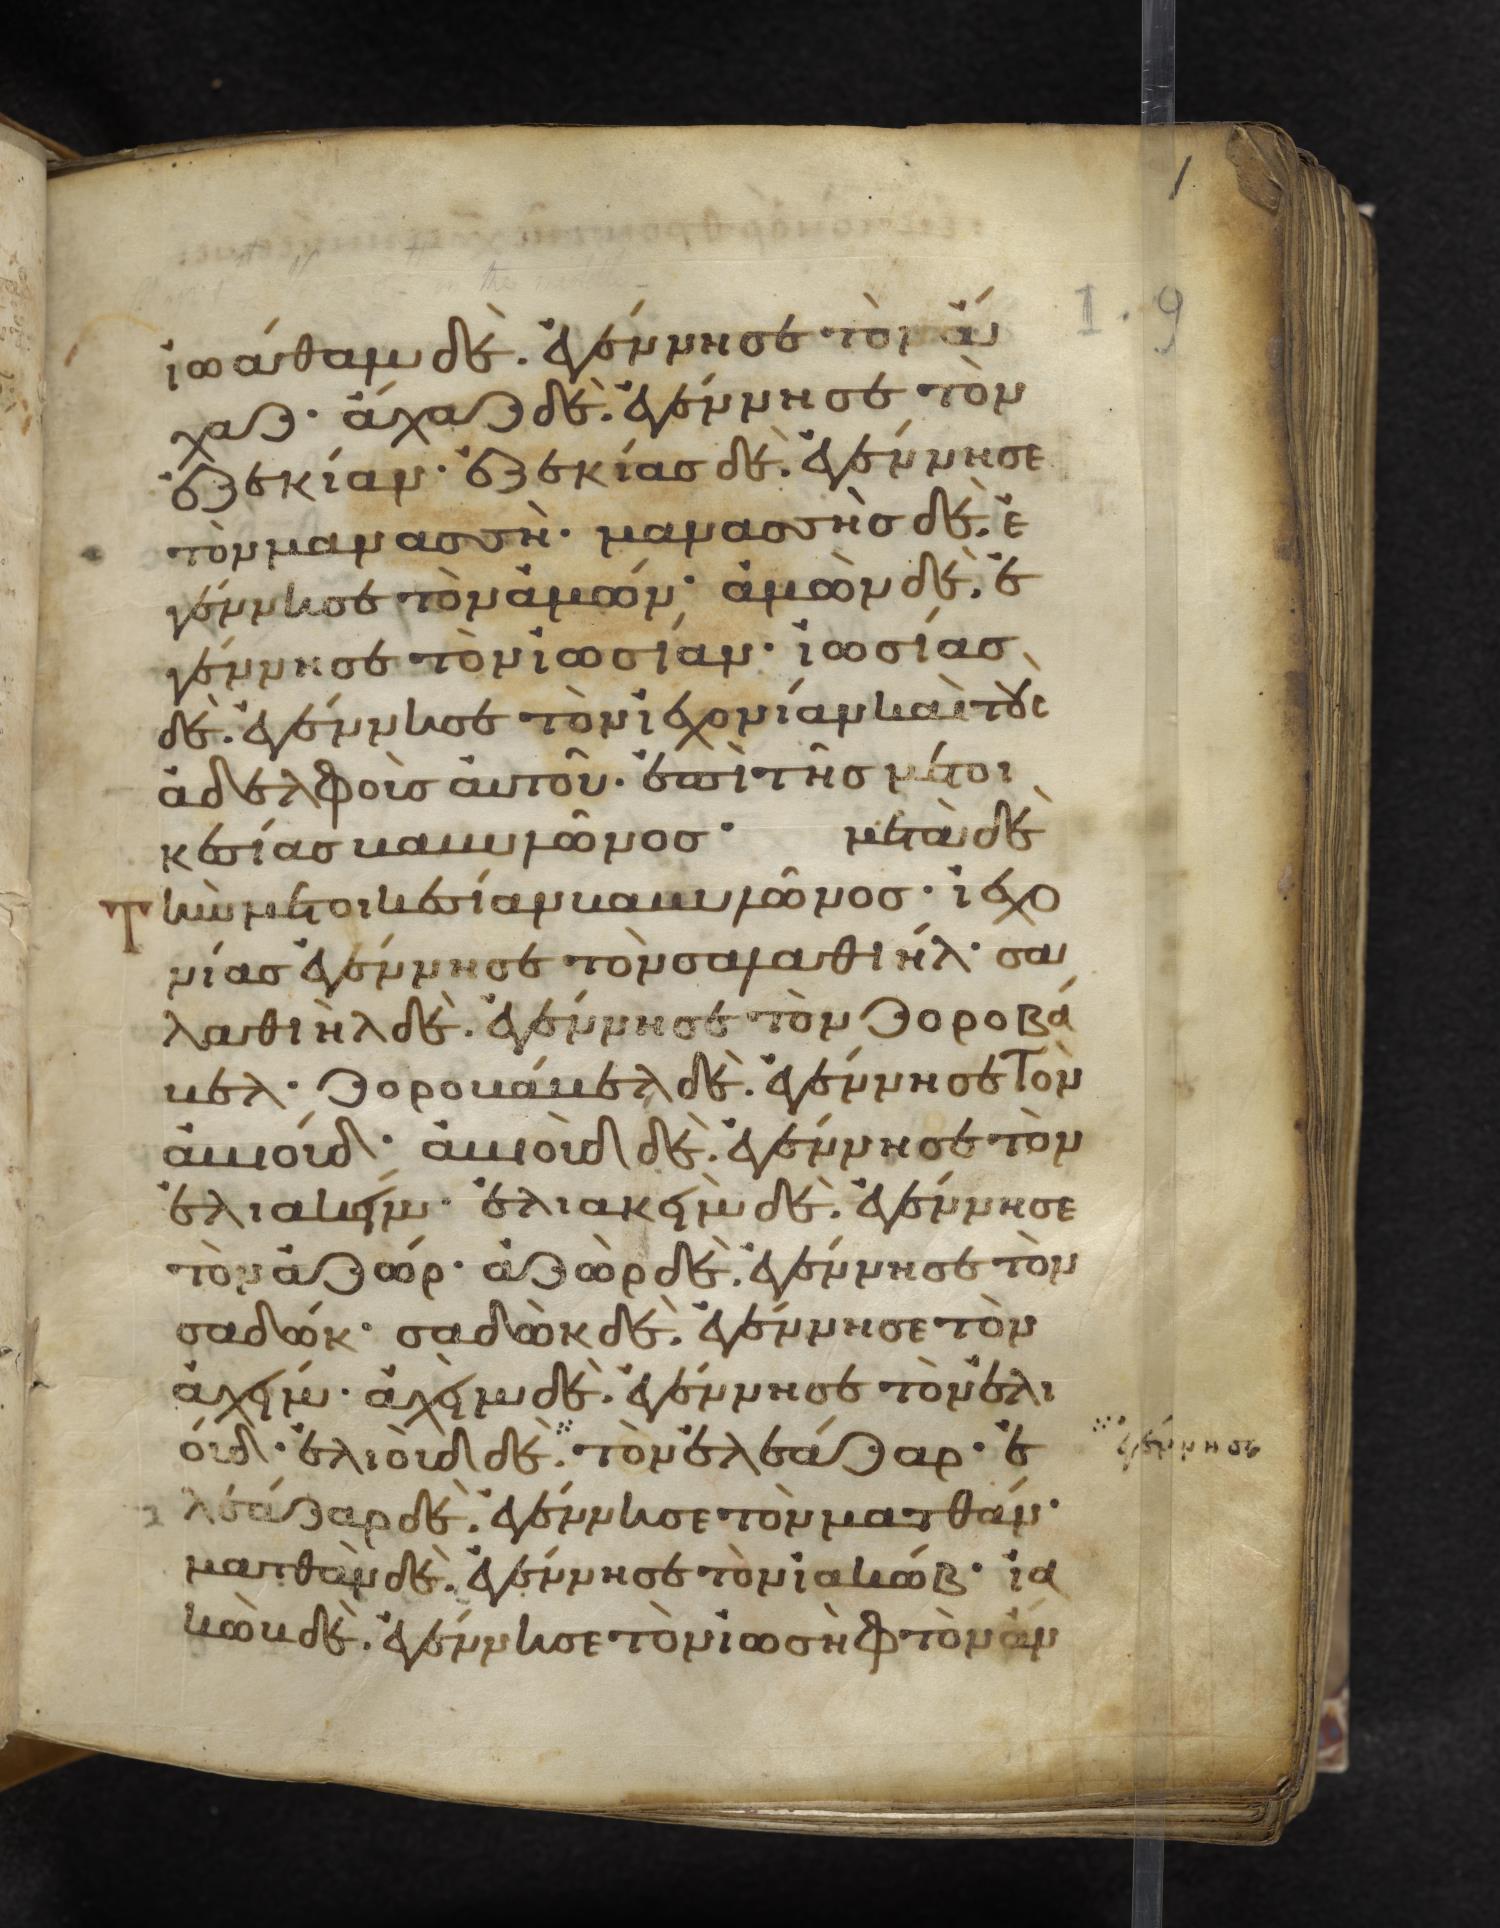 1
1.9
ἰωάθαμ δὲ. ἐγέννησε τὸν ἄ
χαζ· ἄχαζ δὲ. ἐγέννησε τὸν
ἐζεκίαν· ἐζεκίας δὲ. ἐγέννησε
τὸν μανασσὴ· μανασσὴς δὲ. ἐ
γέννησε τὸν ἀμών· ἀμὼν δὲ. ἐ
γέννησε τὸν ἰωσίαν· ἰωσίας
δὲ. ἐγέννησε τὸν ἰεχονίαν καὶ τοὺς
ἀδελφοὺς ἀυτοῦ· ἐπὶ τῆς μετοι
κεσίας βαβυλῶνος· μετὰ δὲ
Τ τὴν μετοικεσίαν βαβυλῶνος· ἰεχο
νίας ἐγέννησε τὸν σαλαθιήλ· σα
λαθιὴλ δὲ. ἐγέννησε τὸν ζοροβά
βελ· ζοροβάβελ δὲ. ἐγέννησε τὸν
ἀβιούδ· ἀβιοὺδ δὲ. ἐγέννησε τὸν
ἐλιακείμ· ἐλιακεὶμ δὲ. ἐγέννησε
τὸν ἀζώρ· ἀζὼρ δὲ. ἐγέννησε τὸν
σαδώκ· σαδὼκ δὲ. ἐγέννησε τὸν
ἀχείμ· ἀχεὶμ δὲ. ἐγέννησε τὸν ἐλι
ούδ· ἐλιοὺδ δὲ. τὸν ἐλεάζαρ· ἐ
ἐγέννησε
λεάζαρ δὲ. ἐγέννησε τὸν ματθάν·
ματθὰν δὲ. ἐγέννησε τὸν ἰακώβ· ἰα
κὼβ δὲ. ἐγέννησε τὸν ἰωσὴφ τὸν ἄν